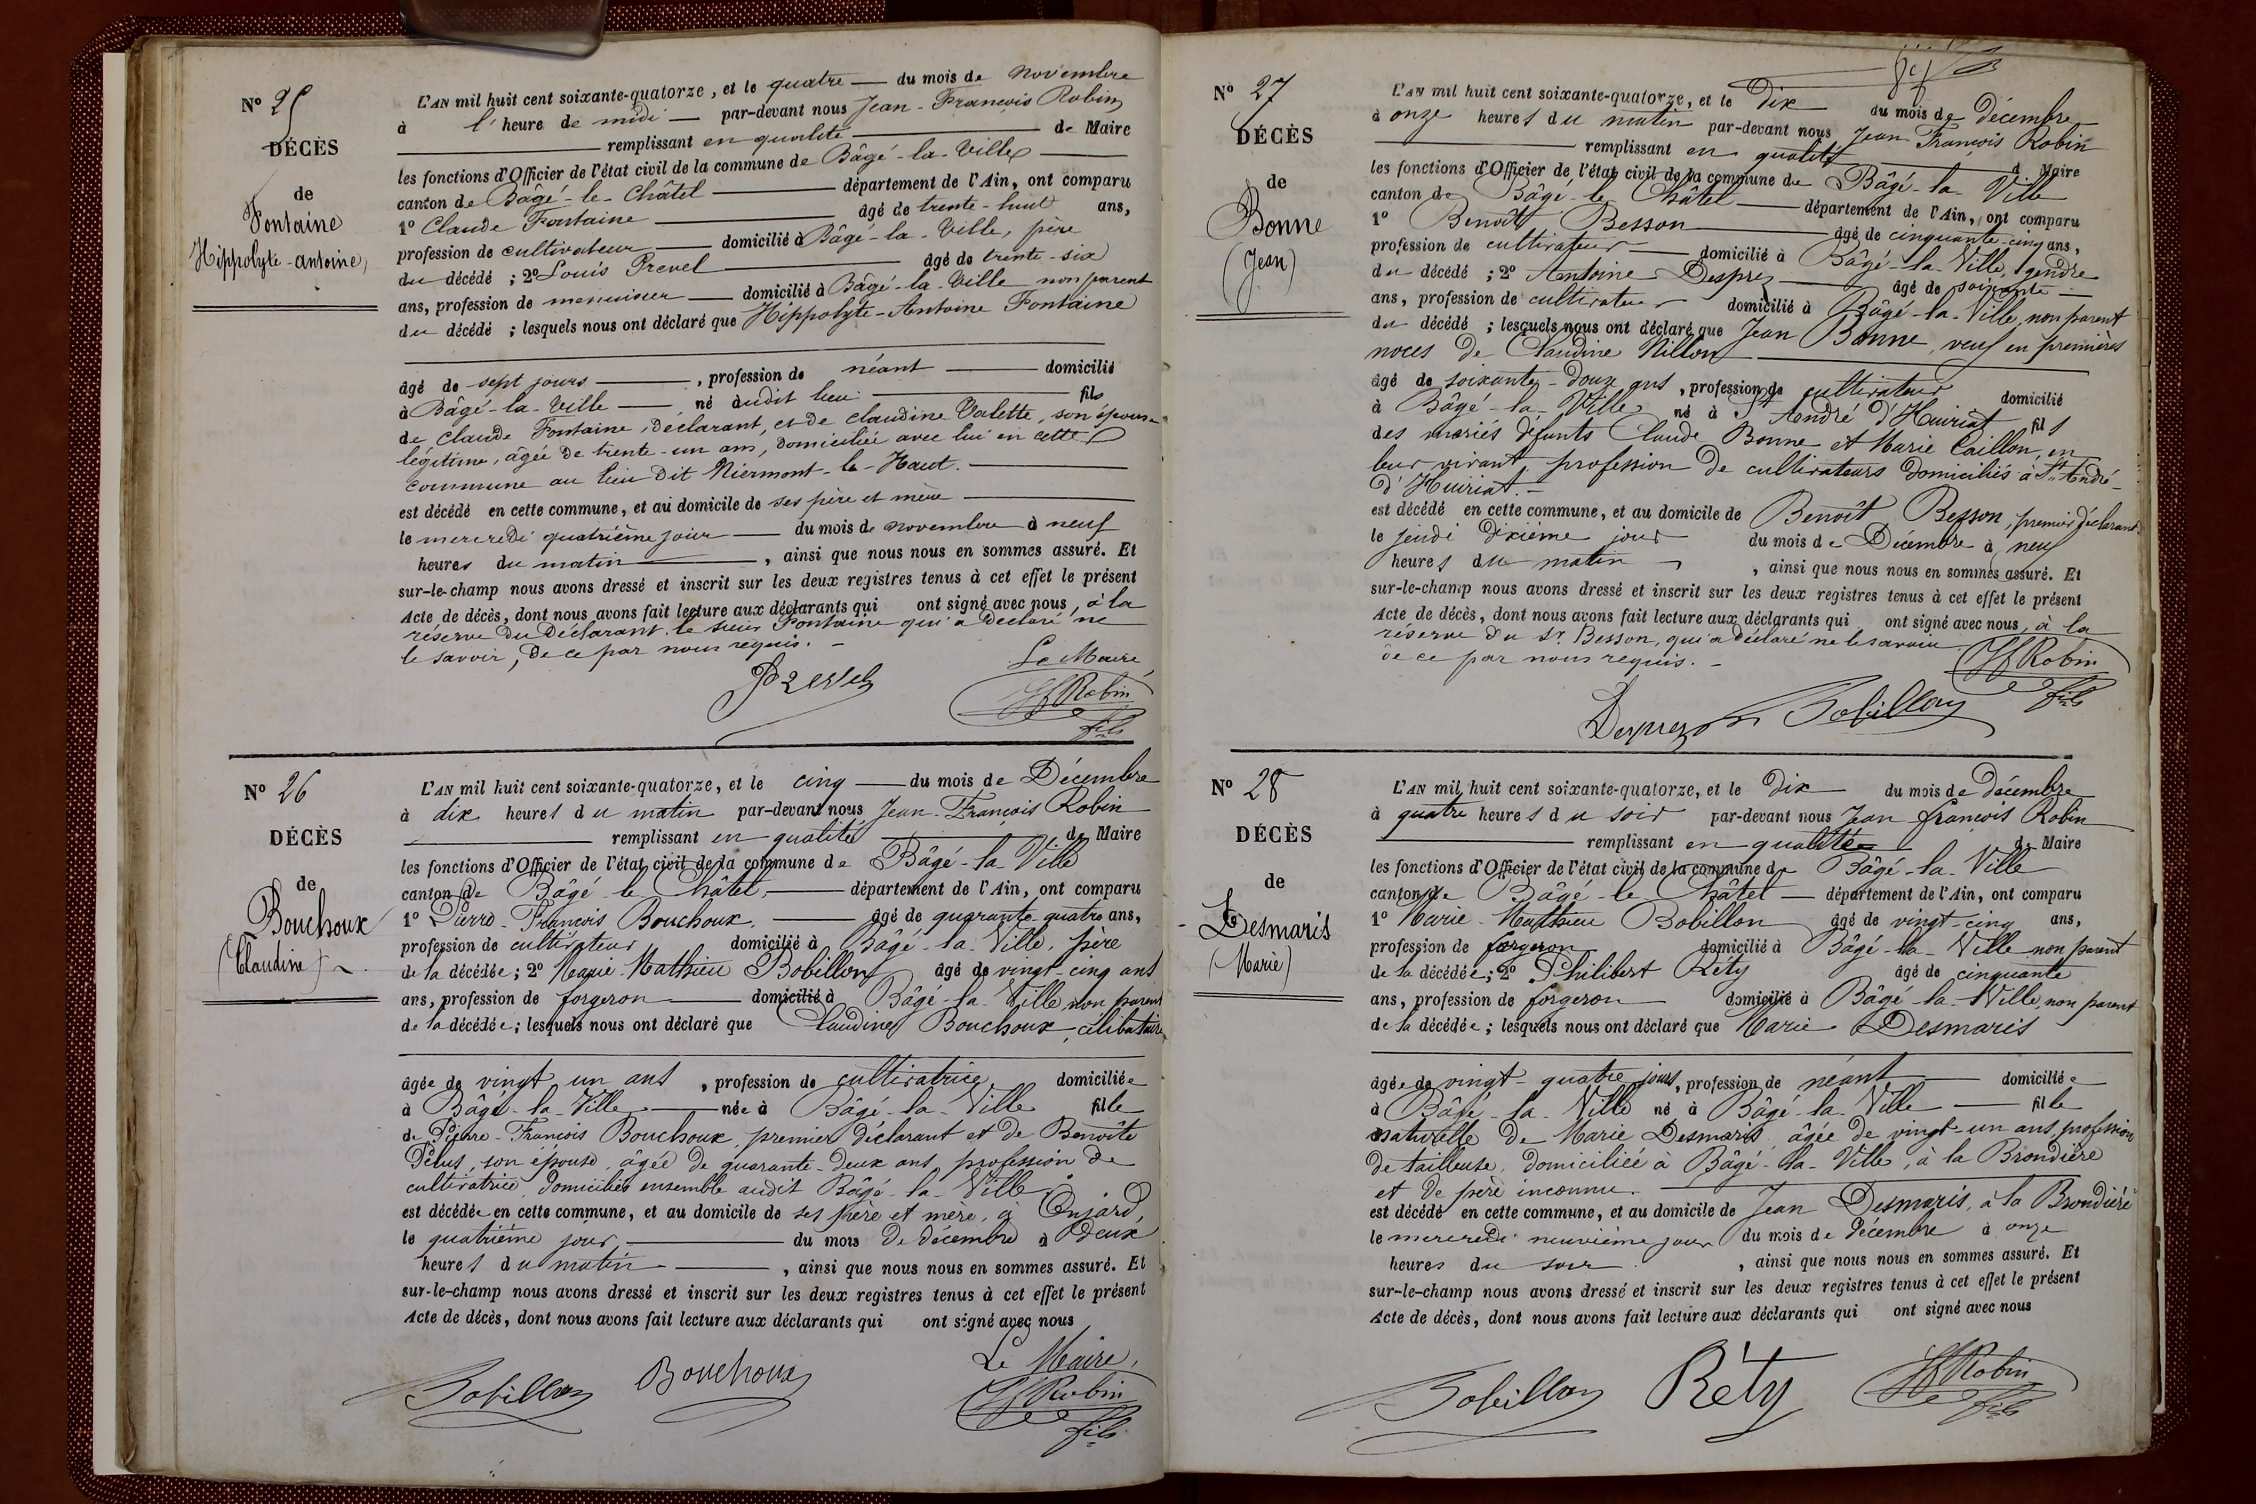 N° 25
DÉCÈS
de
Fontaine
Hippolyte-antoine,
L'AN mil huit cent soixante-quatorze, et le quatre — du mois de novembre
à l'heure de midi — par-devant nous Jean-François Robin
remplissant en qualité de Maire
les fonctions d'Officier de l'état civil de la commune de Bâgé-la-Ville
canton de Bâgé-le-Châtel — département de l'Ain, ont comparu
1° Claude Fontaine — âgé de trente-huit ans,
profession de cultivateur — domicilié à Bâgé-la-Ville, père
du décédé ; 2° Louis Prevel — âgé de trente-six
ans, profession de menuisier — domicilié à Bâgé-la-Ville non parent
du décédé ; lesquels nous ont déclaré que Hippolyte-Antoine Fontaine
âgé de sept jours —, profession de néant — domicilié
à Bâgé-la-Ville — né audit lieu — fils
de Claude Fontaine, déclarant, et de Claudine Valette, son épouse
légitime, âgée de trente-un ans, domiciliée avec lui en cette
commune au lieu dit Niermont-le-Haut. —
est décédé en cette commune, et au domicile de ses père et mère —
le mercredi quatrième jour — du mois de novembre à neuf
heures du matin —, ainsi que nous nous en sommes assuré. Et
sur-le-champ nous avons dressé et inscrit sur les deux registres tenus à cet effet le présent
Acte de décès, dont nous avons fait lecture aux déclarants qui ont signé avec nous, à la
réserve du déclarant le sieur Fontaine qui a déclaré ne
le savoir, de ce par nous requis. —
Le Maire,
Prevel
JF Robin
fils
N° 26
DÉCÈS
de
Bouchoux
(Claudine)
L'AN mil huit cent soixante-quatorze, et le cinq — du mois de Décembre
à dix heures du matin par-devant nous Jean-François Robin
remplissant en qualité de Maire
les fonctions d'Officier de l'état civil de la commune de Bâgé-la Ville
canton de Bâgé-le Châtel, — département de l'Ain, ont comparu
1° Pierre-François Bouchoux, — âgé de quarante-quatre ans,
profession de cultivateur domicilié à Bâgé-la-Ville, père
de la décédée ; 2° Marie-Mathieu Bobillon âgé de vingt-cinq ans
ans, profession de forgeron — domicilié à Bâgé-la-Ville, non parent
de la décédée ; lesquels nous ont déclaré que Claudine Bouchoux, célibataire
âgée de vingt un ans, profession de cultivatrice domiciliée
à Bâgé-la-Ville — née à Bâgé-la-Ville fille
de Pierre-François Bouchoux premier déclarant et de Benoîte
Pelus, son épouse, âgée de quarante-deux ans, profession de
cultivatrice, domiciliés ensemble audit Bâgé-la-Ville,
est décédée en cette commune, et au domicile de ses père et mère, à Onjard,
le quatrième jour — du mois de décembre à deux
heures du matin —, ainsi que nous nous en sommes assuré. Et
sur-le-champ nous avons dressé et inscrit sur les deux registres tenus à cet effet le présent
Acte de décès, dont nous avons fait lecture aux déclarants qui ont signé avec nous
Le Maire,
Bobillon Bouchoux JF Robin
fils
N° 27
DÉCÈS
de
Bonne
(Jean)
L'AN mil huit cent soixante-quatorze, et le Dix du mois de décembre
à onze heures du matin par-devant nous Jean François Robin
remplissant en qualité de Maire
les fonctions d'Officier de l'état civil de la commune de Bâgé-la-Ville
canton de Bâgé-le-Châtel — département de l'Ain, ont comparu
1° Benoît Besson — âgé de cinquante-cinq ans,
profession de cultivateur — domicilié à Bâgé-la-Ville, gendre
du décédé ; 2° Antoine Desprez — âgé de soixante —
ans, profession de cultivateur domicilié à Bâgé-la-Ville, non parent
du décédé ; lesquels nous ont déclaré que Jean Bonne, veuf en premières
noces de Claudine Nillon —
âgé de soixante-douze ans, profession de cultivateur domicilié
à Bâgé-la-Ville né à St André d'Huiriat fils
des mariés défunts Claude Bonne et Marie Caillon, en
leur vivant profession de cultivateurs domiciliés à St André-
d'Huiriat. —
est décédé en cette commune, et au domicile de Benoît Besson, premier déclarant
le jeudi dixième jour du mois de Décembre à neuf
heures du matin —, ainsi que nous nous en sommes assuré. Et
sur-le-champ nous avons dressé et inscrit sur les deux registres tenus à cet effet le présent
Acte de décès, dont nous avons fait lecture aux déclarants qui ont signé avec nous, à la
réserve du Sr Besson, qui a déclaré ne le savoir
de ce par nous requis. —
JF Robin
fils
Desprez Bobillon
N° 28
DÉCÈS
de
Desmaris
(Marie)
L'AN mil huit cent soixante-quatorze, et le Dix — du mois de décembre
à quatre heures du soir par-devant nous Jean françois Robin
remplissant en qualité de Maire
les fonctions d'Officier de l'état civil de la commune de Bâgé-la-Ville
canton de Bâgé-le Châtel — département de l'Ain, ont comparu
1° Marie-Mathieu Bobillon âgé de vingt-cinq ans,
profession de forgeron domicilié à Bâgé-la-Ville non parent
de la décédée ; 2° Philibert Réty âgé de cinquante
ans, profession de forgeron — domicilié à Bâgé-la-Ville, non parent
de la décédée ; lesquels nous ont déclaré que Marie Desmaris
âgée de vingt-quatre jours, profession de néant — domiciliée
à Bâgé-la-Ville né à Bâgé-la-Ville — fille
naturelle de Marie Desmaris âgée de vingt-un ans, profession
de tailleuse, domiciliée à Bâgé-la-Ville, à la Brondière
et de père inconnu. —
est décédé en cette commune, et au domicile de Jean Desmaris, à la Brondière
le mercredi neuvième jour du mois de décembre à onze
heures du soir, ainsi que nous nous en sommes assuré. Et
sur-le-champ nous avons dressé et inscrit sur les deux registres tenus à cet effet le présent
Acte de décès, dont nous avons fait lecture aux déclarants qui ont signé avec nous
Bobillon Réty JF Robin
fils